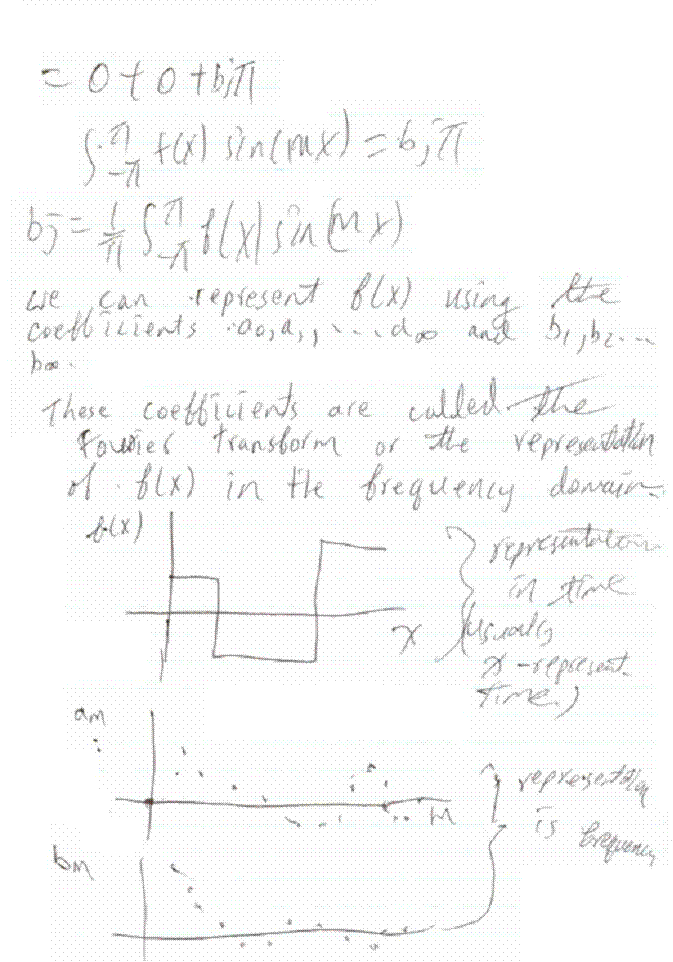 = 0 + 0 + bjπ
∫_{-π}^{π} f(x) sin(mx) = bjπ
bj = 1/π ∫_{-π}^{π} f(x) sin(mx)
we can represent f(x) using the
coefficients a₀, a₁, .... a∞ and b₁, b₂ ...
b∞.
These coefficients are called the
Fourier transform or the representation
of f(x) in the frequency domain.
f(x)
representation
in time
x
(usually
x-represent
time.)
am
representation
m
is frequency
bm